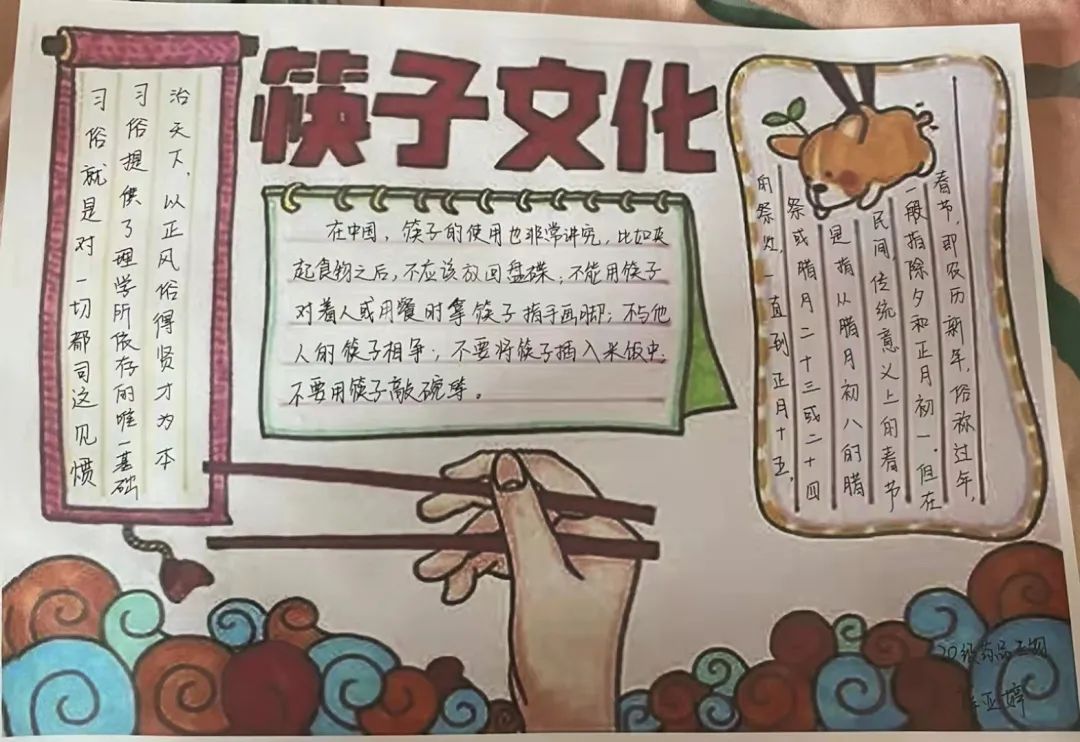 筷子文化
治天下,以正风俗得贤才为本
习俗提供了理学所依存的唯一基础
习俗就是对一切都司这见惯
在中国,筷子的使用也非常讲究,比如夹
起食物之后,不应该放回盘碟,不能用筷子
对着人或用餐时拿筷子指手画脚;不与他
人的筷子相争;不要将筷子插入米饭中;
不要用筷子敲碗等。
春节,即农历新年,俗称过年,
一般指除夕和正月初一.但在
民间,传统意义上的春节
是指从腊月初八的腊
祭或腊月二十三或二十四
的祭灶,一直到正月十五,
20级药品
亚婷